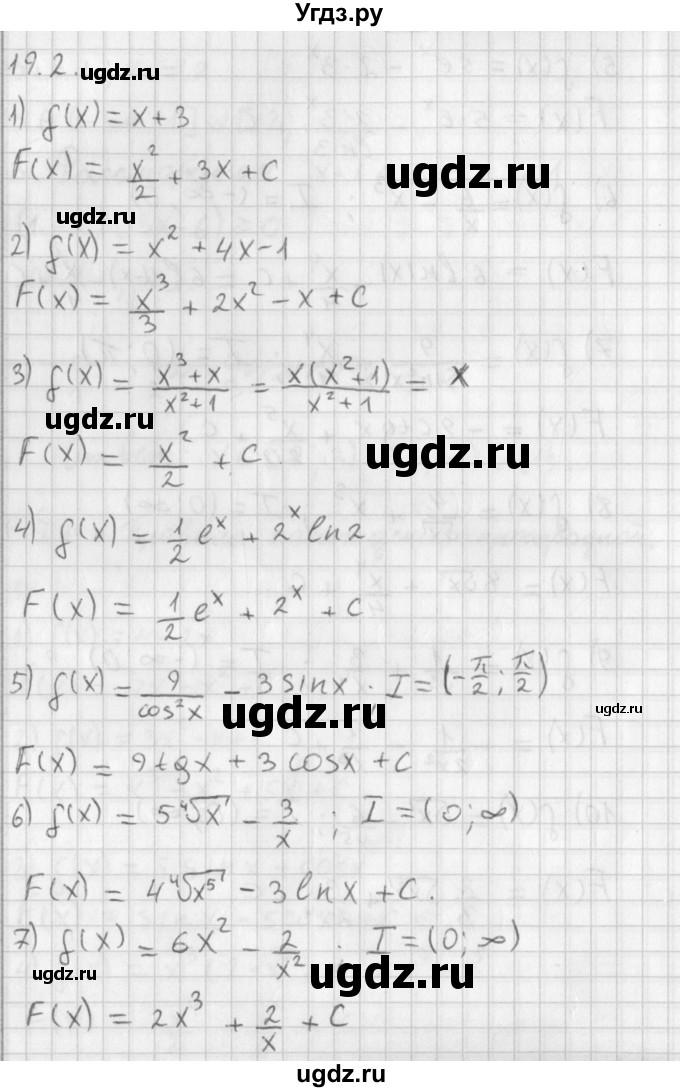 Угдз.ру
19.2.
ugdz.ru
1) f(x) = x + 3
F(x) = x²/2 + 3x + C
ugdz.ru
ugdz.ru
2) f(x) = x² + 4x - 1
F(x) = x³/3 + 2x² - x + C
3) f(x) = (x³ + x)/(x² + 1) = x(x² + 1)/(x² + 1) = x
ugdz.ru
F(x) = x²/2 + C.
ugdz.ru
4) f(x) = 1/2 eˣ + 2ˣ ln2
F(x) = 1/2 eˣ + 2ˣ + C
5) f(x) = 9/cos²x - 3 sinx; I = (-π/2; π/2)
ugdz.ru
ugdz.ru
F(x) = 9tgx + 3cosx + C
6) f(x) = 5⁴√x - 3/x; I = (0; ∞)
F(x) = 4⁴√x⁵ - 3lnx + C.
7) f(x) = 6x² - 2/x²; I = (0; ∞)
ugdz.ru
ugdz.ru
F(x) = 2x³ + 2/x + C
ugdz.ru